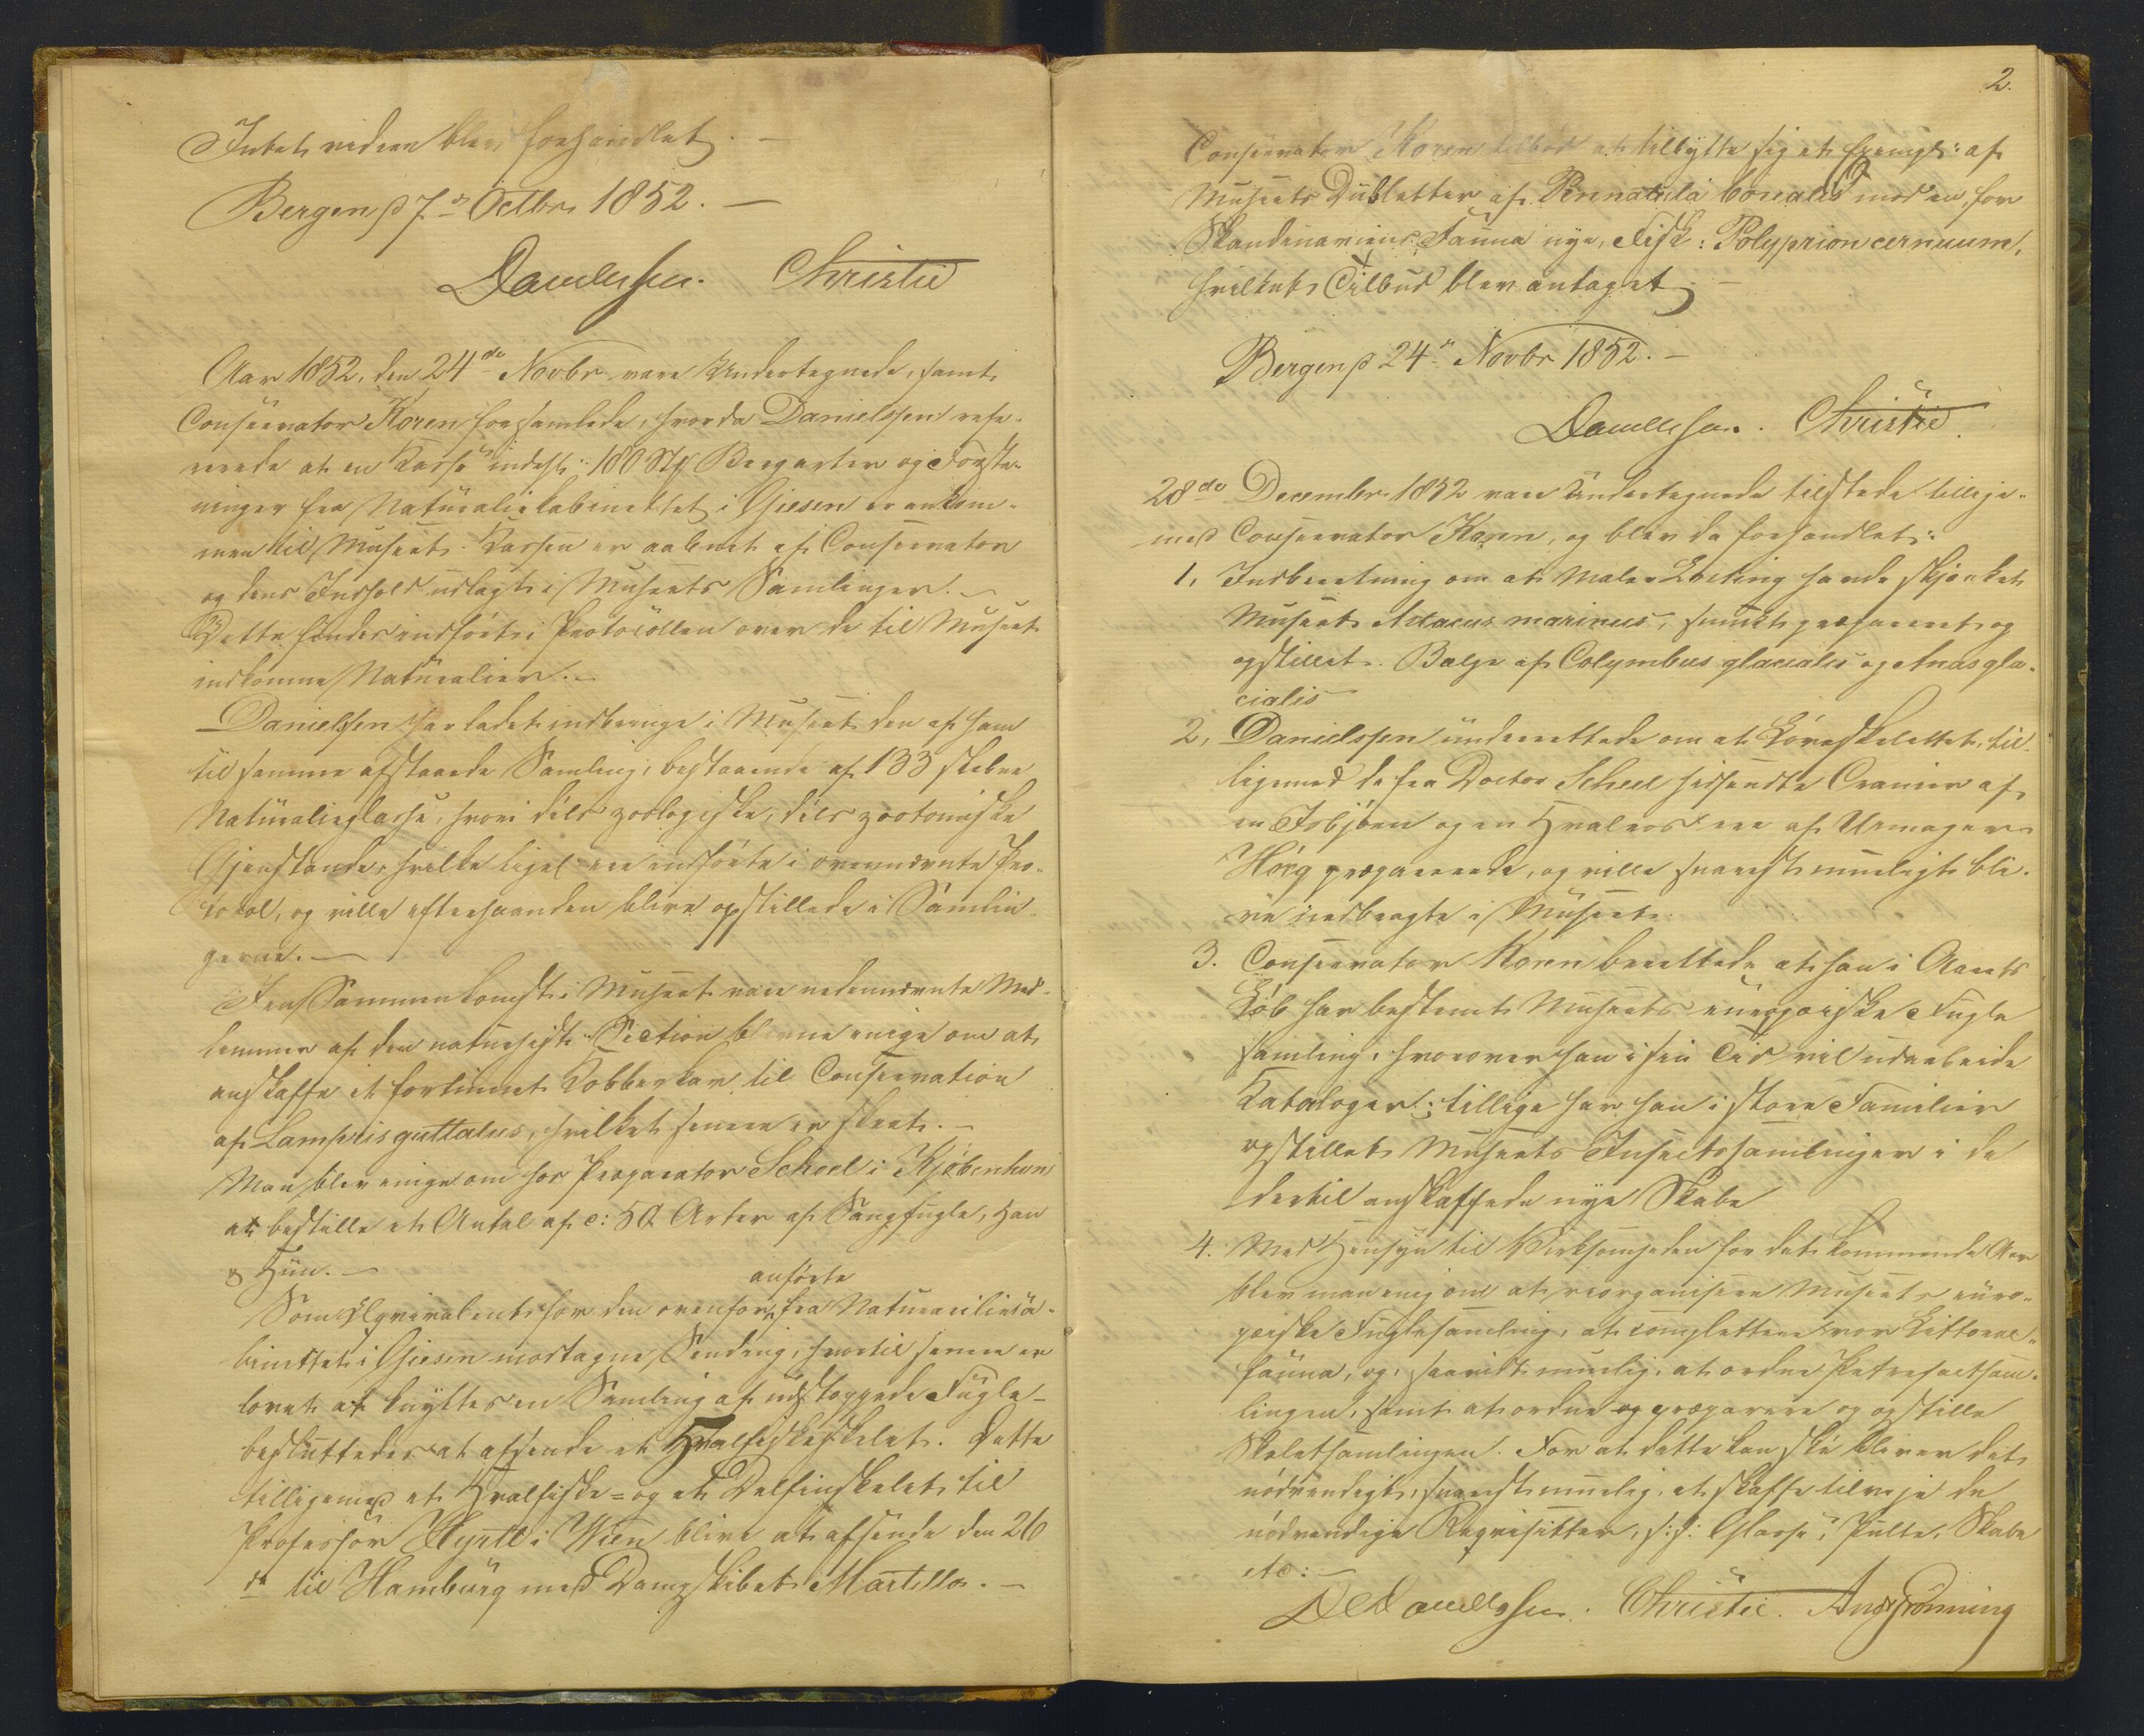 Intet videre blev forhandlet. —
Bergen p 7de Octbr 1852. —
Danielssen. Christie
Aar 1852, den 24de Novbr vare Undertegnede, samt
Conservator Koren forsamlede, hvorda Danielssen refe-
rerede at en Kasse indeh: 100 Stk Bergarter og Forste-
ninger fra Naturaliekabinettet i Giesen er ankom-
men til Museet. Kassen er aabnet af Conservator
og dens Indhold udlagt i Museets Samlinger. —
Dette findes indført i Protocollen over de til Museet
indkomne Naturalier. —
Danielssen har ladet indbringe i Museet den af ham
til samme afstaaede Samling, bestaaende af 133 slebne
Naturalieglasse, hvori dels zoologiske, dels zootomiske
Gjenstande, hvilke ligel ere indførte i ovennævnte Pro-
tokol, og ville efterhaanden blive opstillede i Samlin-
gerne. —
I en Sammenkomst i Museet vare nedennævnte Med-
lemmer af den naturhist: Section blevne enige om at
anskaffe et fortinnet Kobberkar til Conservation
af Lampris guttatus, hvilket senere er skeet. —
Man blev enige om hos Præparator Scheel i Kjøbenhavn
at bestille et Antal af c: 50 Arter af Sangfugle, Han
& Hun. —
anførte
Som Æqvivalent for den ovenfor fra Naturalieca-
binettet i Giesen modtagne Sending, hvortil senere er
lovet at knyttes en Samling af udstoppede Fugle —
besluttedes at afsende et Hvalfiskeskelet. Dette
tilligemed et Hvalfiske= og et Delfinskelet til
Professor Hyrtl i Wien blive at afsende den 26
de til Hamburg med Dampskibet Martello. —
2.
Conservator Koren tilbød at tilbytte sig et Exempl: af
Museets Dubletter af Pennatula borealis mod en, for
Skandinaviens Fauna nye, Fisk: Polyprion cernuum,
hvilket Tilbud blev antaget —
Bergen p 24de Novbr 1852. —
Danielssen. Christie.
28de December 1852 vare Undertegnede tilstede tillige-
med Conservator Koren, og blev da forhandlet:
1, Indberetning om at Maler Losting havde skjænket
Museet Astacus marinus, smukt præpareret og
opstillet. Balge af Colymbus glacialis og Anas gla-
cialis
2, Danielssen underrettede om at Løveskelettet, til-
ligemed de fra Doctor Scheel hidsendte Cranier af
en Isbjørn og en Hvalros ere af Urmager
Høeg præparerede, og ville snarest mueligt bli-
ve indbragte i Museet.
3. Conservator Koren berettede at han i Aarets
Løb har bestemt Museets europæiske Fugle
samling, hvorover han i sin Tid vil udarbeide
Kataloger; tillige har han i store Familier
opstillet Museets Insectsamlinger i de
dertil anskaffede nye Skabe
4. Med Hensyn til Virksomheden for det kommende Aar
blev man enig om at reorganisere Museets euro-
pæiske Fuglesamling, at complettere vor Littoral-
fauna, og, saavidt muelig, at ordne Petrefactsam-
lingen, samt at ordne og præparere og opstille
Skeletsamlingen. For at dette kan ske bliver det
nødvendigt, snarest muelig, at skaffe tilveje de
nødvendige Reqvisitter, s: s: Glasse, Pulte, Skabe
etc: —
DCDanielssen. Christie. AndGrønning